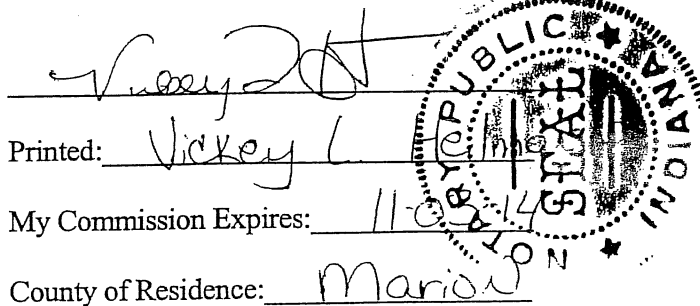 Printed: Vickey L.
My Commission Expires: 11-05-14
County of Residence: Marion
NOTARY PUBLIC
SEAL
INDIANA